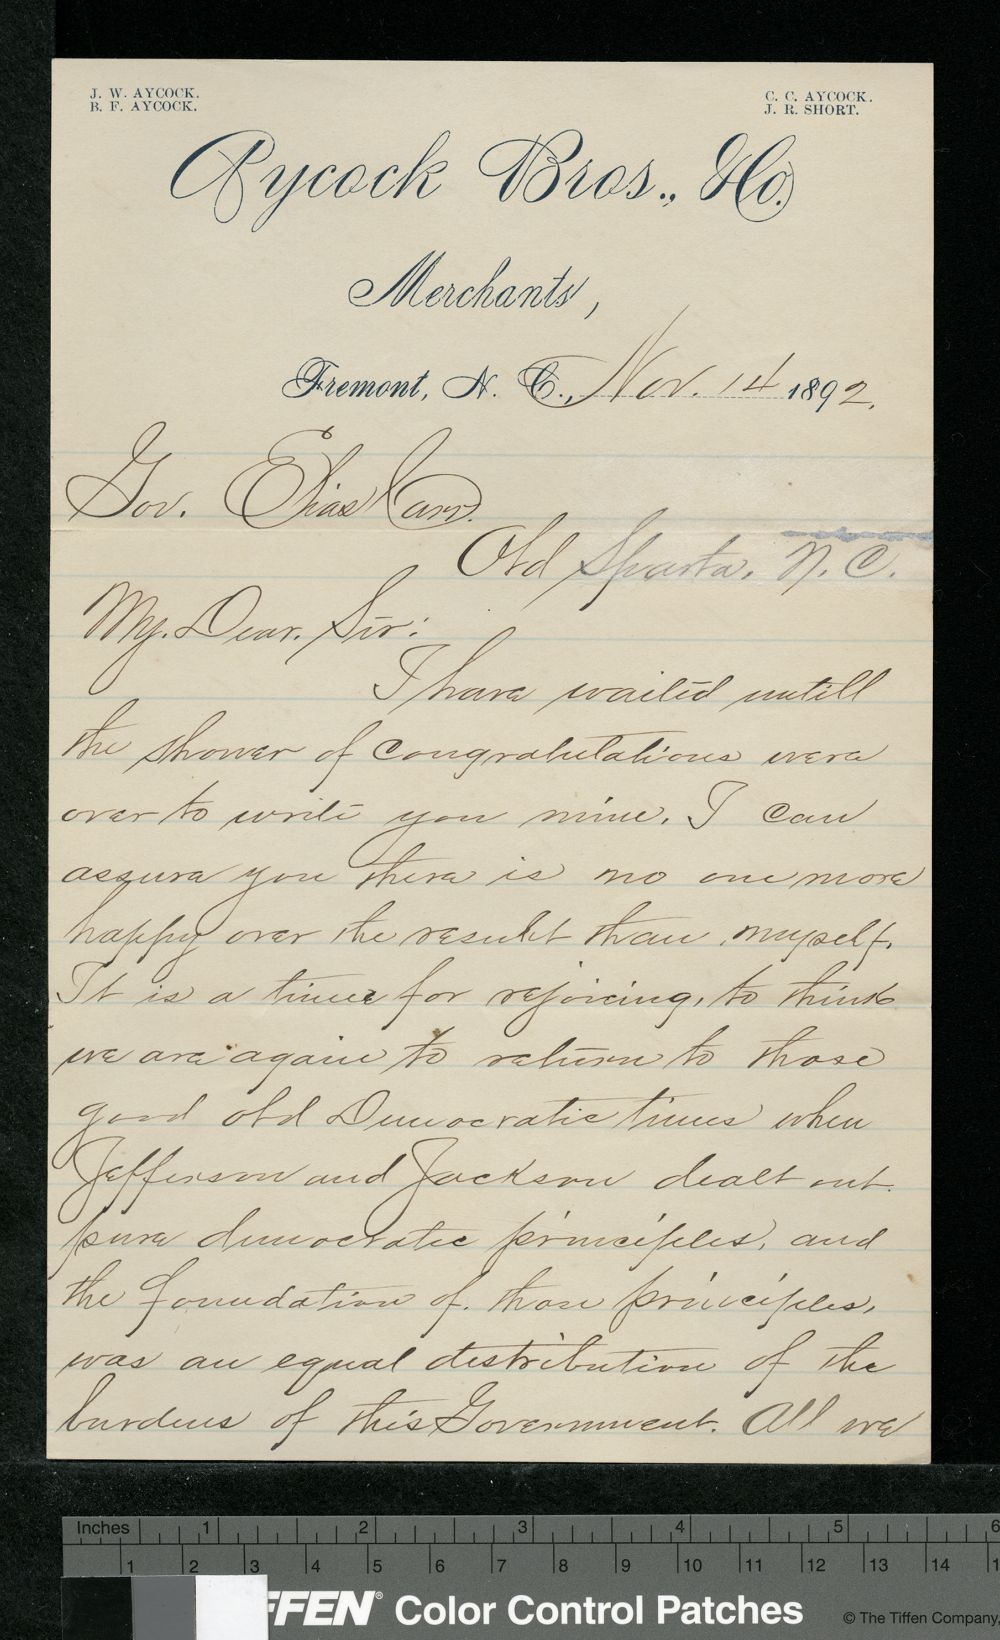 J. W. AYCOCK.
B. F. AYCOCK.
C. C. AYCOCK.
J. R. SHORT.
Aycock Bros., & Co.
Merchants,
Fremont, N. C., Nov. 14 1892.
Gov. Elias Carr.
Old Sparta, N. C.
My. Dear. Sir:
I have waited untill
the shower of congratulations were
over to write you mine. I can
assure you there is no one more
happy over the result than myself.
It is a time for rejoicing, to think
we are again to return to those
good old Democratic times when
Jefferson and Jackson dealt out
pure democratic principles, and
the foundation of those principles,
was an equal distribution of the
burdens of this Government. All we
Inches 1 2 3 4 5 6
1 2 3 4 5 6 7 8 9 10 11 12 13 14 1
FFEN® Color Control Patches
© The Tiffen Company,